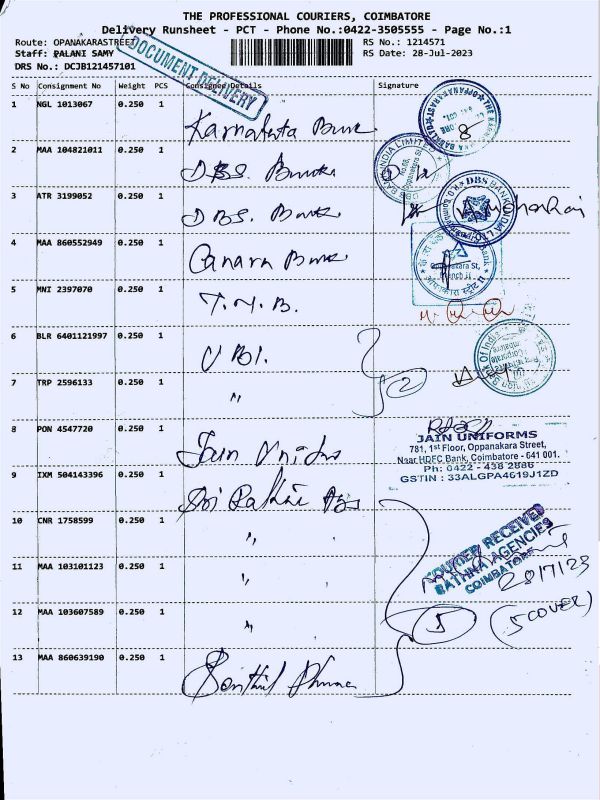 THE PROFESSIONAL COURIERS, COIMBATORE
Delivery Runsheet - PCT - Phone No.:0422-3505555 - Page No.:1
Route: OPANAKARASTREET RS No.: 1214571
Staff: PALANI SAMY RS Date: 28-Jul-2023
DRS No.: DCJB121457101
DOCUMENT DELIVERY
S No Consignment No Weight PCS Consignee/Details Signature
1 NGL 1013067 0.250 1 Karnataka Bank
2 MAA 104821011 0.250 1 DBS. Bank
3 ATR 3199052 0.250 1 DBS. Bank
4 MAA 860552949 0.250 1 Canara Bank
5 MNI 2397070 0.250 1 T.M.B.
6 BLR 6401121997 0.250 1 UBI.
7 TRP 2596133 0.250 1 " 2
8 PON 4547720 0.250 1 Jain Unifor
JAIN UNIFORMS
781, 1st Floor, Oppanakara Street,
Near HDFC Bank, Coimbatore - 641 001.
Ph: 0422 - 438 2886
GSTIN : 33ALGPA4619J1ZD
9 IXM 504143396 0.250 1 Sri Rathna
10 CNR 1758599 0.250 1 "
COURIER RECEIVED
RATHNA AGENCIES
COIMBATORE
28/7/23
11 MAA 103101123 0.250 1 "
12 MAA 103607589 0.250 1 " 5
(5 COVER)
13 MAA 860639190 0.250 1 Senthil